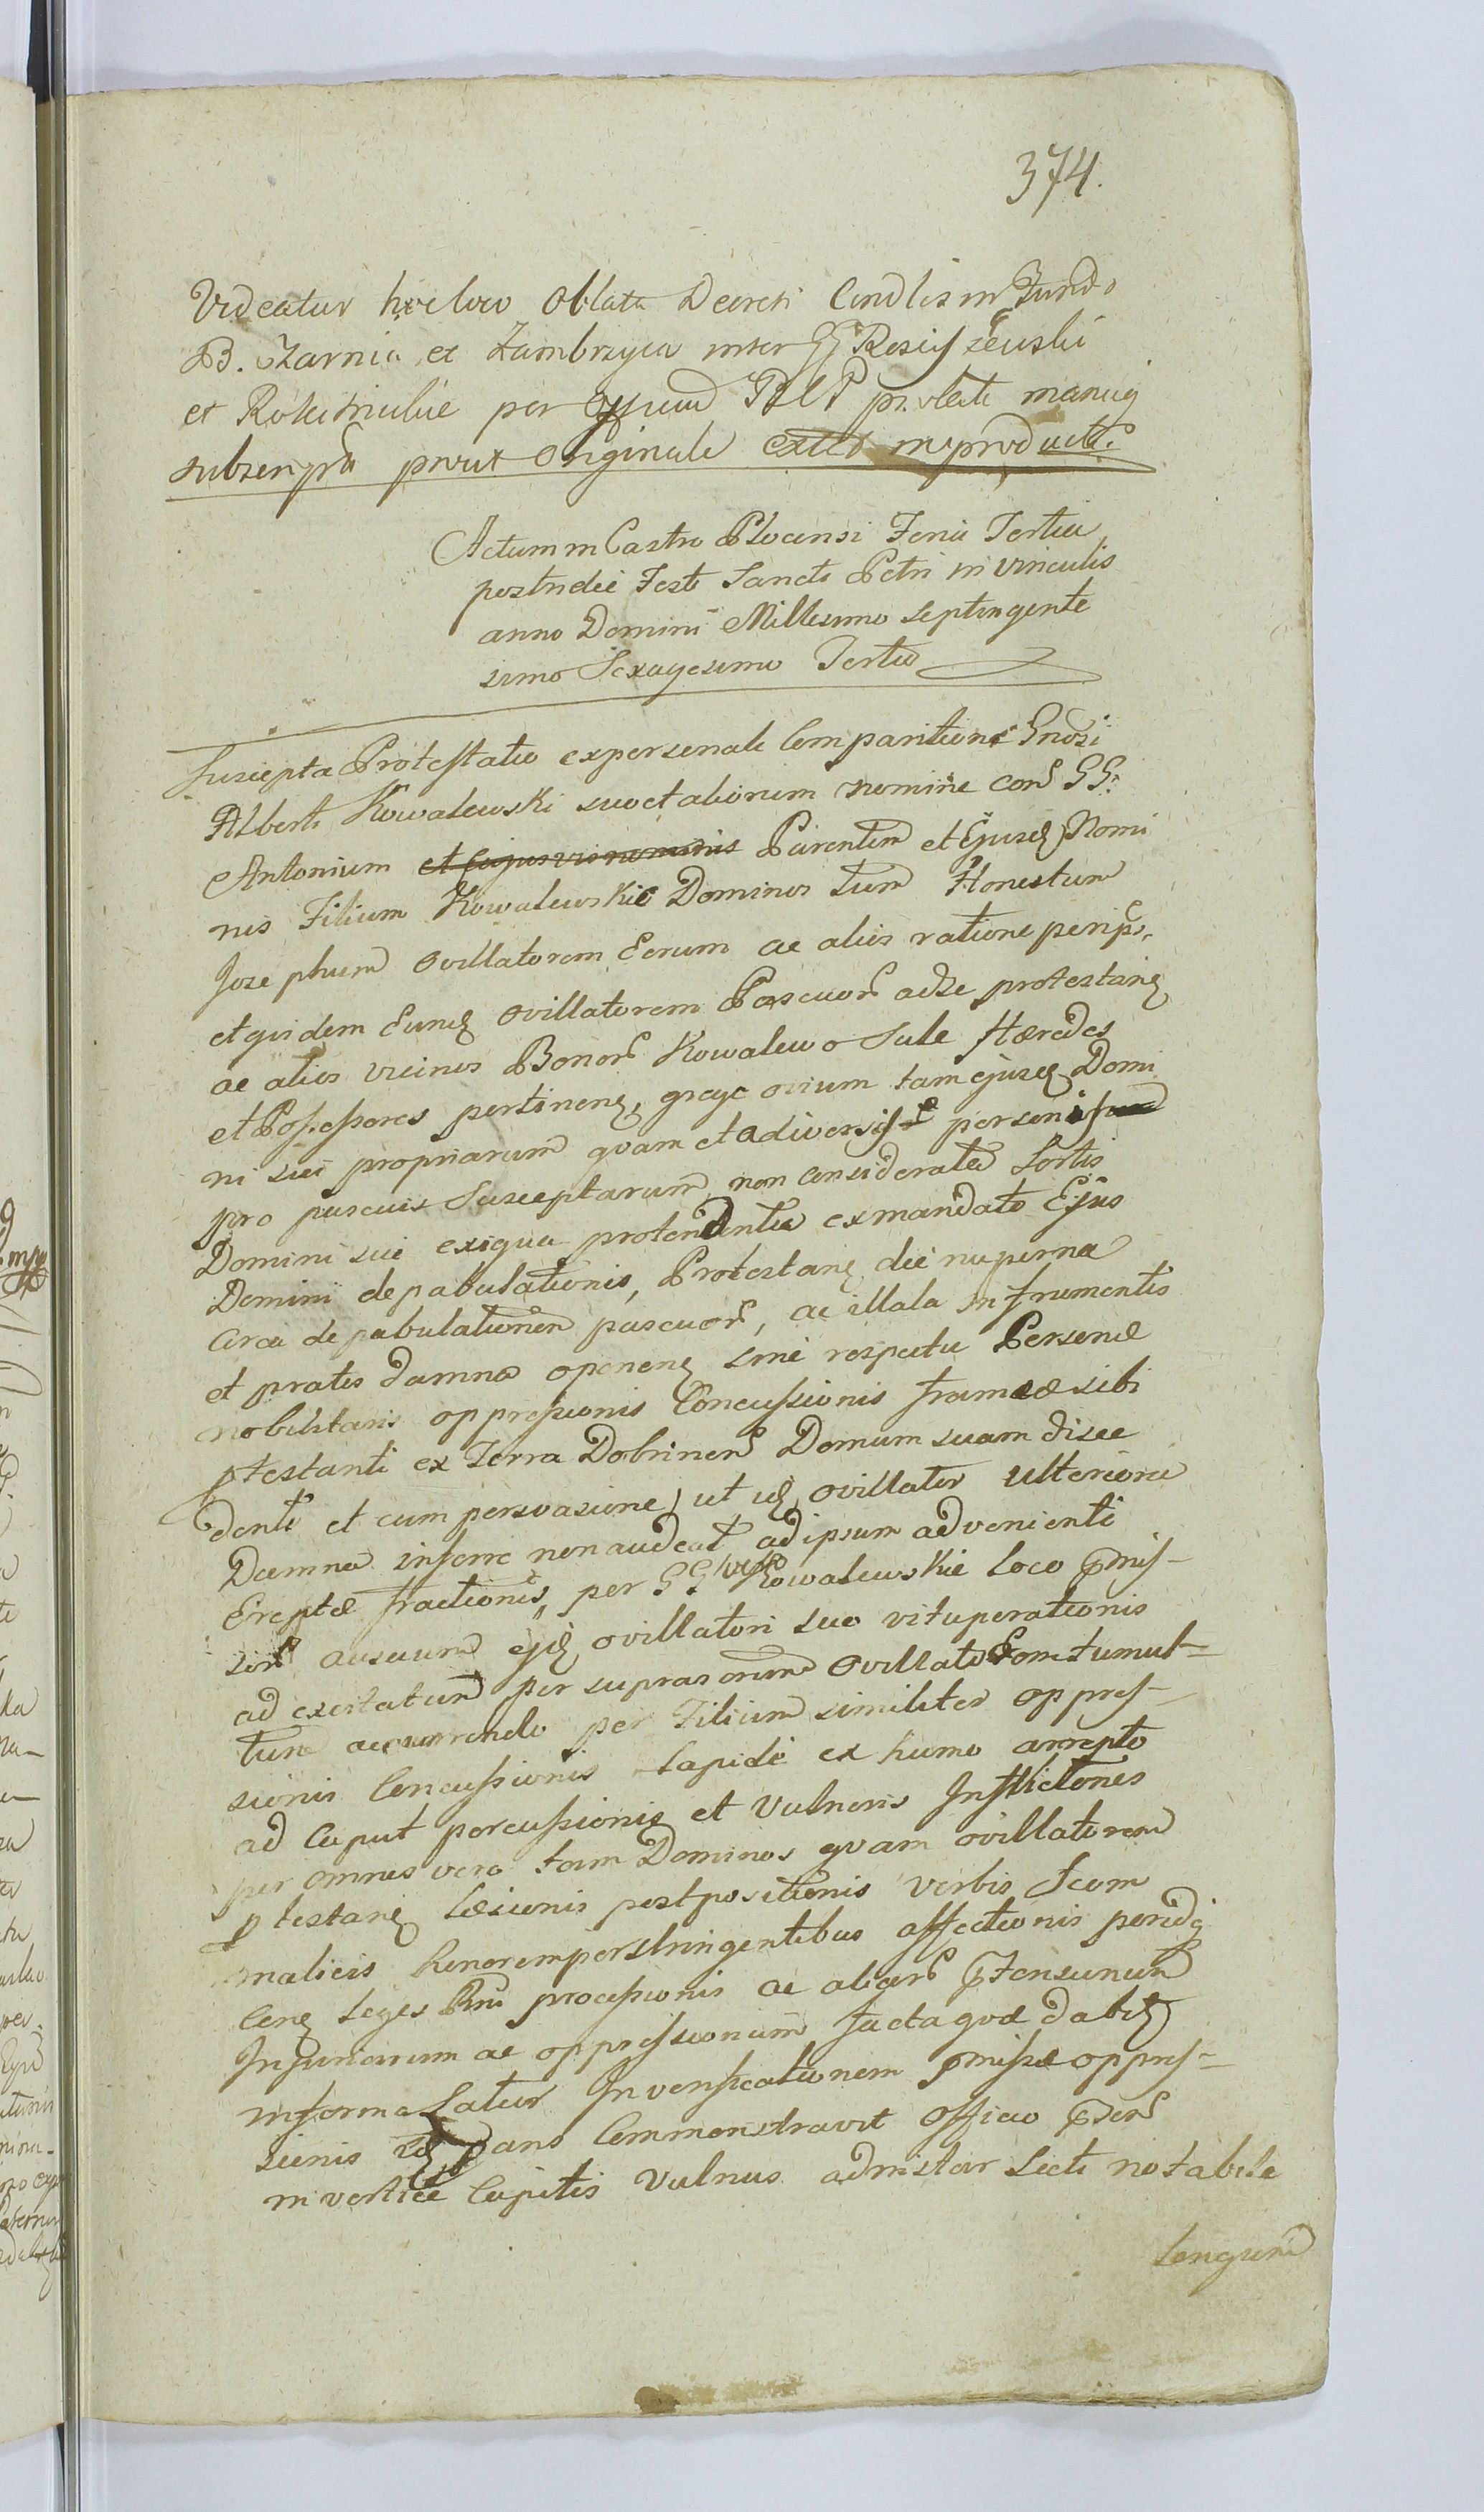 374.
Videatur hocloco Oblata Decreti Condlis in Fundo
B. Czarnia et Zambrzyca inter GG
et per Gssum prolati manuq
subscripti prout Originale extat inproductt.
Actum in Castro Plocensi Feria Tertia
postridie Festi Sancti Petri in Vinculis
anno Domini Millesimo Septingente
simo Sexagesimo Tertio
Suscepta Protestatio expersonali Comparitione Gnosi
Alberti Kowalewski suo et aliorum nomine con GG:
Antonium et Parentem et Ejusd Nomi
nis Filium Kowalewskie Dominos tum Honestum
Josephum Ovillatorem Eorum ac alios ratione
et quidem Eund Ovillatorem Pascuor adse protestan
ac alios vicinos Bonor Kowalewo Sule Hæredes
et Possessores pertinen, grege ovium tam ejusd Domi
ni sui propriarum quam et adiversis personis
pro pascuis Susceptarum, non considerata Sortis
Domini sui exigua protendentia exmandato Ejus
Domini depabulationis, Protestan die nuperna
circa depabulationem pascuor, ac illata in frumentis
et pratis damna oponen sine respectu Personæ
nobilitaris oppressionis Concussionis frameæ sibi
ptestanti ex Terra Dobrinen Domum suam disce
denti et cum persvasione, ut id ovillator ulteriora
Damna inferre non audeat ad ipsum advenienti
Ereptæ fractionis, per GG Kowalewskie loco pmis-
sor ausuum ejd ovillatori suo vituperationis
ad excitatum per Ovillatorem tumul-
tum accurrendo per Filium similiter oppres-
sionis Concussionis lapide ex humo arrepto
ad Caput percussionis et Vulneris Inflictiones
per omnes vero tam Dominos quam ovillatorem
ptestan læsionis postpositionis verbis Scom
maticis honoremperstringentibus affectionis
leges Rni processionis ac aliar
Injuriarum ac oppressionum facta quæ dabit
informa Latior Inverificationem pmissæ oppres-
sionis id Commonstravit officio
in vertice Capitis Vulnus adinstar Secti notabile
Longum